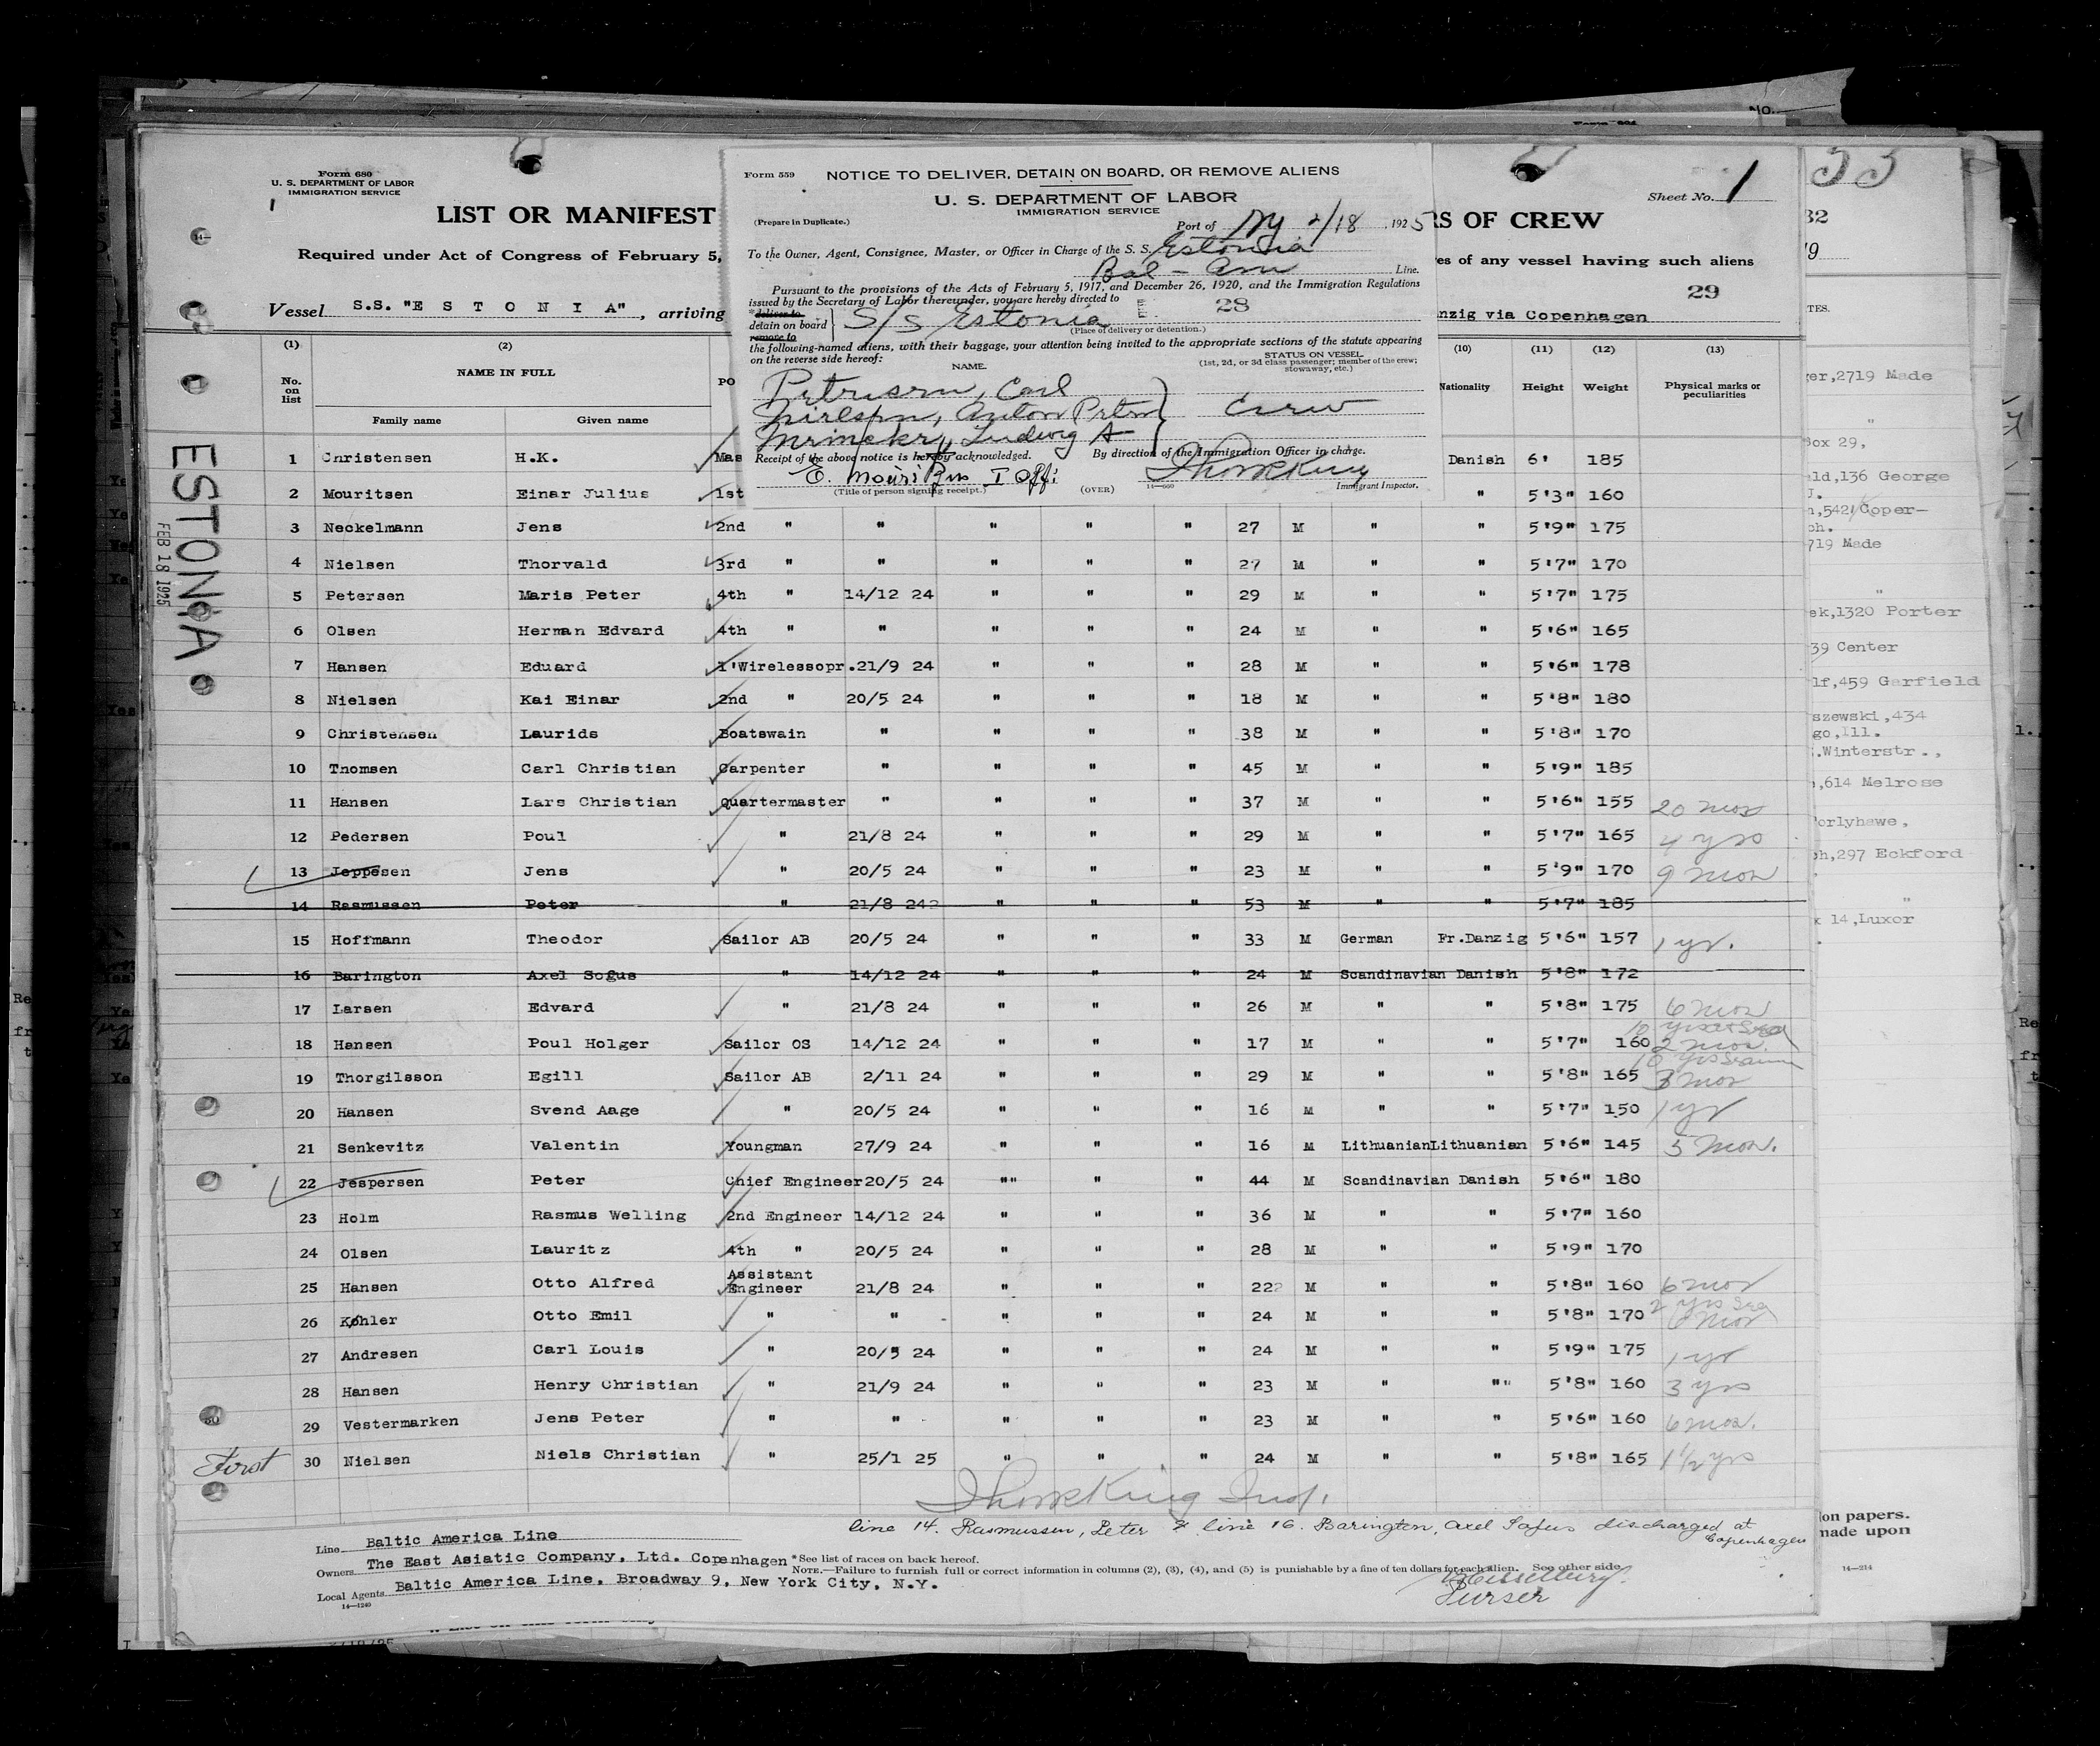 Form 680
U. S. DEPARTMENT OF LABOR
IMMIGRATION SERVICE
LIST OR MANIFEST
Required under Act of Congress of February 5,
Vessel S.S. "E S T O N I A", arriving
Form 559
NOTICE TO DELIVER, DETAIN ON BOARD, OR REMOVE ALIENS
U. S. DEPARTMENT OF LABOR
IMMIGRATION SERVICE
(Prepare in Duplicate.)
Port of NY 2/18, 1925
To the Owner, Agent, Consignee, Master, or Officer in Charge of the S. S. Estonia
Bal - Am Line.
Pursuant to the provisions of the Acts of February 5, 1917, and December 26, 1920, and the Immigration Regulations
issued by the Secretary of Labor thereunder, you are hereby directed to
28
*deliver to
detain on board
remove to
S/S Estonia
(Place of delivery or detention.)
the following-named aliens, with their baggage, your attention being invited to the appropriate sections of the statute appearing
on the reverse side hereof:
NAME.
STATUS ON VESSEL
(1st, 2d, or 3d class passenger; member of the crew; stowaway, etc.)
Carl
Anton
Ludwig A
Crew
Receipt of the above notice is hereby acknowledged.
By direction of the Immigration Officer in charge.
E. Mouritzen I Offi
(Title of person signing receipt.)
(OVER)
14—660
Immigrant Inspector.
Sheet No. 1
RS OF CREW
es of any vessel having such aliens
29
nzig via Copenhagen
(1) (2) (10) (11) (12) (13)
No. on list
NAME IN FULL
PO
Nationality Height Weight Physical marks or peculiarities
Family name Given name
ESTONIA
FEB 18 1925
1 Christensen H.K. Mas Danish 6' 185
2 Mouritsen Einar Julius 1st " 5'3" 160
3 Neckelmann Jens 2nd " " " " " 27 M " " 5'9" 175
4 Nielsen Thorvald 3rd " " " " " 27 M " " 5'7" 170
5 Petersen Maris Peter 4th " 14/12 24 " " " 29 M " " 5'7" 175
6 Olsen Herman Edvard 4th " " " " " 24 M " " 5'6" 165
7 Hansen Eduard 1'Wirelessopr. 21/9 24 " " " 28 M " " 5'6" 178
8 Nielsen Kai Einar 2nd " 20/5 24 " " " 18 M " " 5'8" 180
9 Christensen Laurids Boatswain " " " " 38 M " " 5'8" 170
10 Thomsen Carl Christian Carpenter " " " " 45 M " " 5'9" 185
11 Hansen Lars Christian Quartermaster " " " " 37 M " " 5'6" 155 20 mos
12 Pedersen Poul " 21/8 24 " " " 29 M " " 5'7" 165 4 yrs
13 Jeppesen Jens " 20/5 24 " " " 23 M " " 5'9" 170 9 mos
14 Rasmussen Peter " 21/8 24 " " " 53 M " " 5'7" 185
15 Hoffmann Theodor Sailor AB 20/5 24 " " " 33 M German Fr.Danzig 5'6" 157 1 yr.
16 Barington Axel Sofus " 14/12 24 " " " 24 M Scandinavian Danish 5'8" 172
17 Larsen Edvard " 21/8 24 " " " 26 M " " 5'8" 175 6 mos
18 Hansen Poul Holger Sailor OS 14/12 24 " " " 17 M " " 5'7" 160 2 mos.
19 Thorgilsson Egill Sailor AB 2/11 24 " " " 29 M " " 5'8" 165 3 mos
20 Hansen Svend Aage " 20/5 24 " " " 16 M " " 5'7" 150 1 yr
21 Senkevitz Valentin Youngman 27/9 24 " " " 16 M Lithuanian Lithuanian 5'6" 145 5 mos.
22 Jespersen Peter Chief Engineer 20/5 24 "" " " 44 M Scandinavian Danish 5'6" 180
23 Holm Rasmus Welling 2nd Engineer 14/12 24 " " " 36 M " " 5'7" 160
24 Olsen Lauritz 4th " 20/5 24 " " " 28 M " " 5'9" 170
25 Hansen Otto Alfred Assistant Engineer 21/8 24 " " " 22 M " " 5'8" 160 6 mos
26 Køhler Otto Emil " " " " " 24 M " " 5'8" 170 6 mos
27 Andresen Carl Louis " 20/5 24 " " " 24 M " " 5'9" 175 1 yr
28 Hansen Henry Christian " 21/9 24 " " " 23 M " "" 5'8" 160 3 yrs
29 Vestermarken Jens Peter " " " " " 23 M " " 5'6" 160 6 mos.
First 30 Nielsen Niels Christian " 25/1 25 " " " 24 M " " 5'8" 165 1 1/2 yrs
line 14. Rasmussen, Peter & line 16. Barington, Axel Sofus discharged at Copenhagen
Line Baltic America Line
Owners The East Asiatic Company, Ltd. Copenhagen
Local Agents Baltic America Line, Broadway 9, New York City, N.Y.
14—1240
*See list of races on back hereof.
NOTE.—Failure to furnish full or correct information in columns (2), (3), (4), and (5) is punishable by a fine of ten dollars for each alien. See other side.
Purser
33
32
ger,2719 Made
Box 29,
ald,136 George
n,542 Coper-
719 Made
ek,1320 Porter
39 Center
lf,459 Garfield
szewski,434
go,Ill.
.Winterstr.,
,614 Melrose
orlyhawe,
ph,297 Eckford
x 14,Luxor
on papers.
made upon
14—214